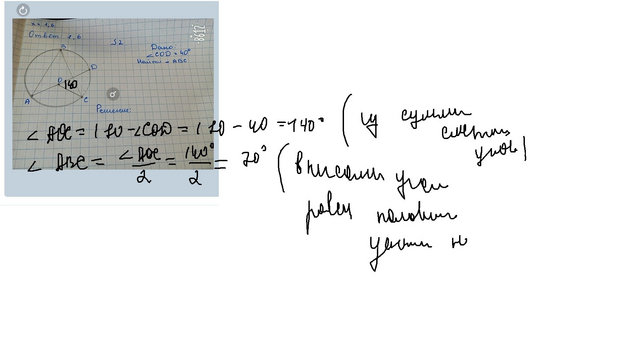 Ответ: 1,6
52
Дано:
∠COD = 40°
Найти: ∠ABC
B
D
O
140
A
C
Решение:
∠ AOC = 180 - ∠COD = 180 - 40 = 140° (из суммы
смежных
углов)
∠ ABC = ∠AOC / 2 = 140° / 2 = 70° (вписанный угол
равен половине